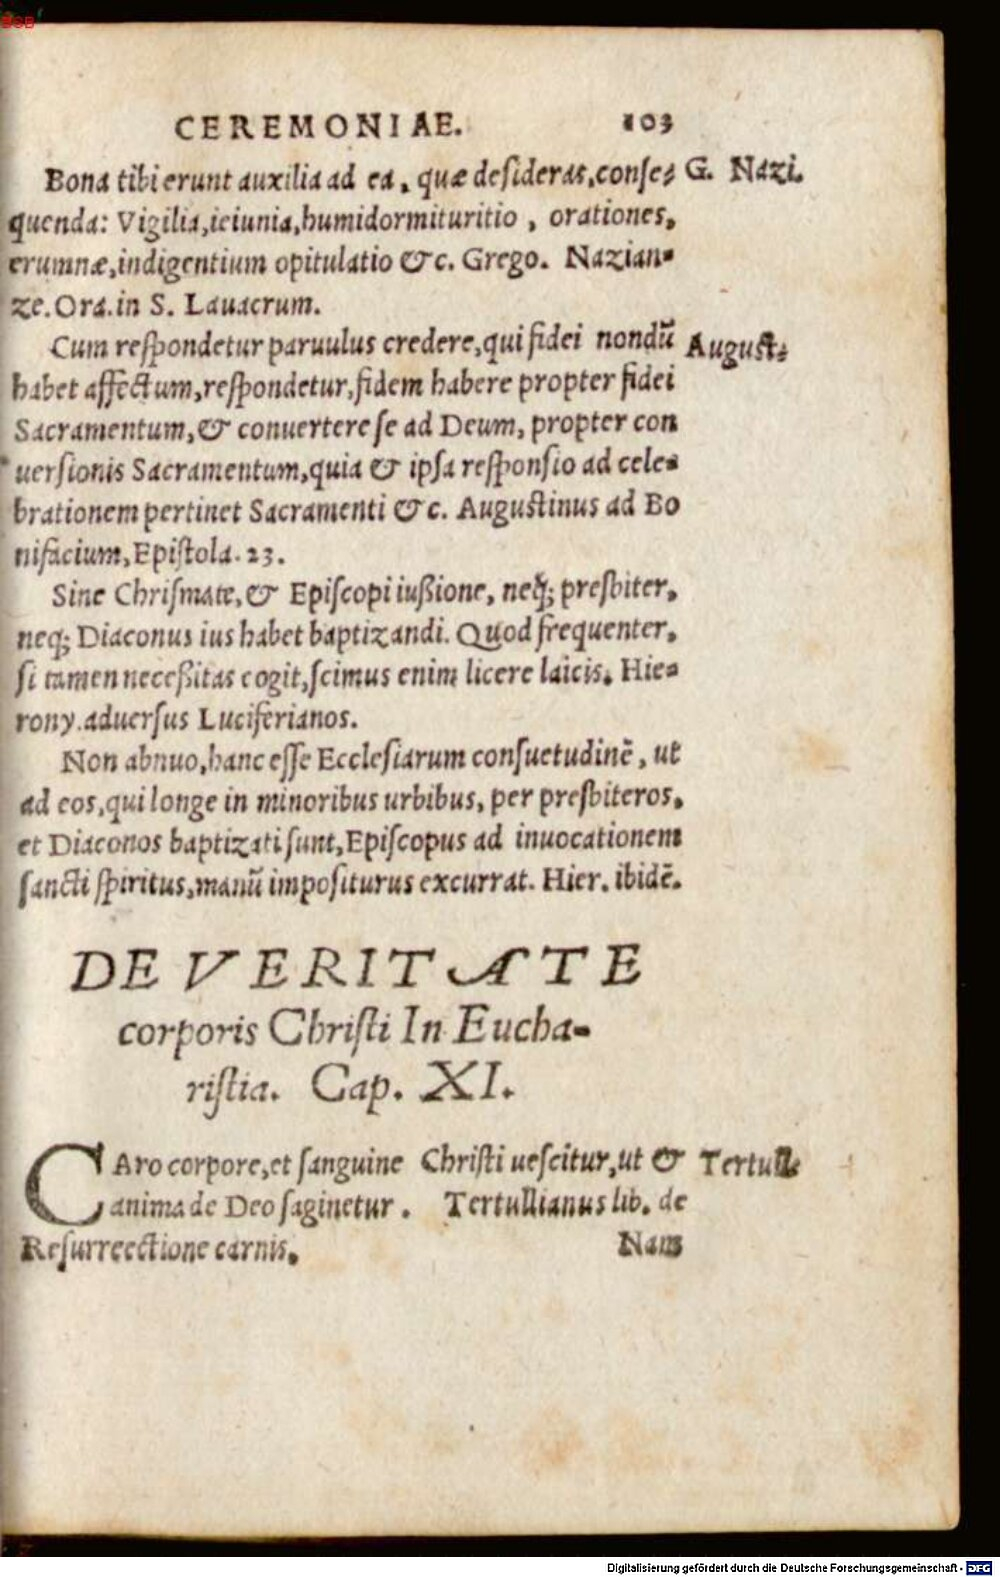 BSB
CEREMONIAE. 103
Bona tibi erunt auxilia ad ea, quæ desideras, conse= G. Nazi.
quenda: Vigilia, ieiunia, humidormituritio, orationes,
erumnæ, indigentium opitulatio &c. Grego. Nazian=
ze. Ora. in S. Lauacrum.
Cum respondetur paruulus credere, qui fidei nondū August:
habet affectum, respondetur, fidem habere propter fidei
Sacramentum, & conuertere se ad Deum, propter con
uersionis Sacramentum, quia & ipsa responsio ad cele=
brationem pertinet Sacramenti &c. Augustinus ad Bo
nifacium, Epistola. 23.
Sine Chrismate, & Episcopi iußione, neq; presbiter,
neq; Diaconus ius habet baptizandi. Quod frequenter,
si tamen neceßitas cogit, scimus enim licere laicis. Hie=
rony. aduersus Luciferianos.
Non abnuo, hanc esse Ecclesiarum consuetudinē, ut
ad eos, qui longe in minoribus urbibus, per presbiteros,
et Diaconos baptizati sunt, Episcopus ad inuocationem
sancti spiritus, manū impositurus excurrat. Hier. ibidē.
DE VERITATE
corporis Christi In Eucha=
ristia. Cap. XI.
CAro corpore, et sanguine Christi uescitur, ut & Tertull:
anima de Deo saginetur. Tertullianus lib. de
Resurreectione carnis. Nam
Digitalisierung gefördert durch die Deutsche Forschungsgemeinschaft - DFG